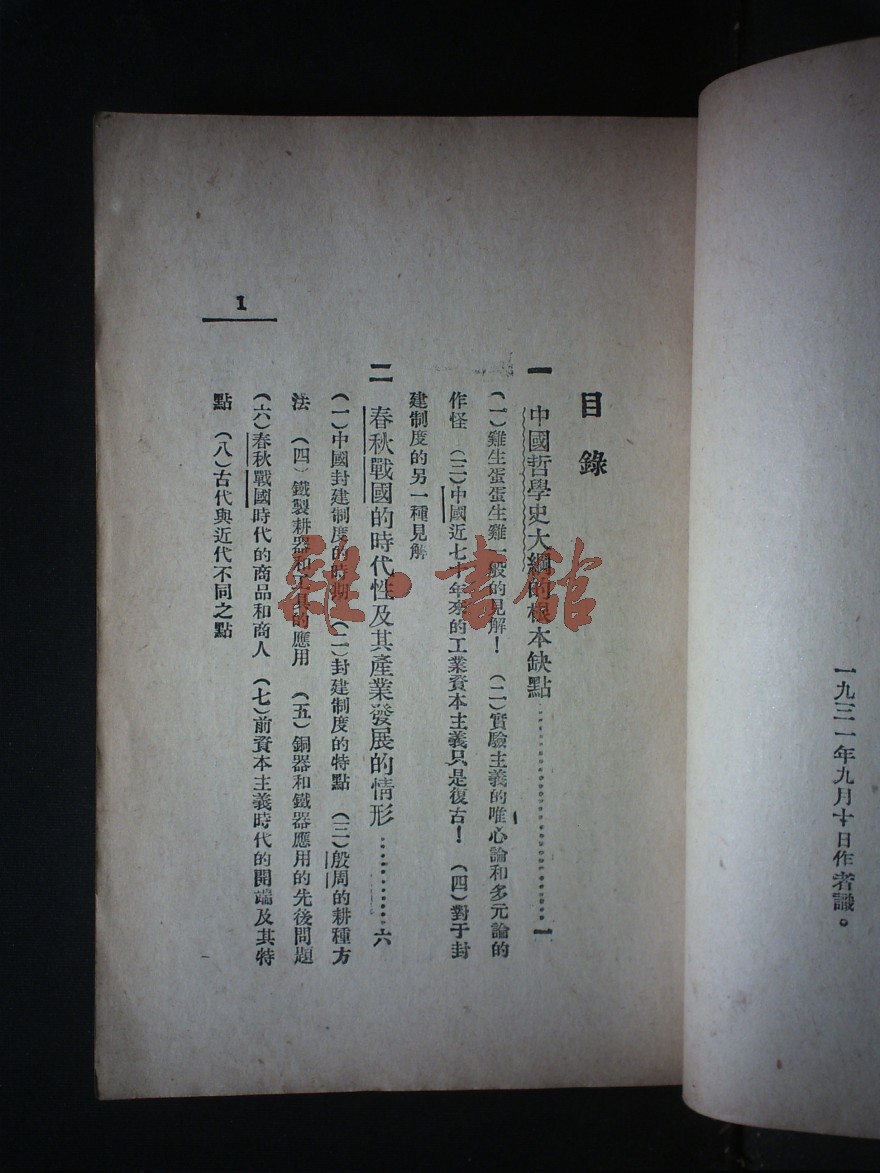 一九三一年九月十日作者識。
目錄
一 中國哲學史大綱的根本缺點………………一
(一)雞生蛋蛋生雞一般的見解！ (二)實驗主義的唯心論和多元論的
作怪 (三)中國近七十年來的工業資本主義只是復古！ (四)對于封
建制度的另一種見解
二 春秋戰國的時代性及其產業發展的情形…………六
(一)中國封建制度的時期 (二)封建制度的特點 (三)殷周的耕種方
法 (四)鐵製耕器和工具的應用 (五)銅器和鐵器應用的先後問題
(六)春秋戰國時代的商品和商人 (七)前資本主義時代的開端及其特
點 (八)古代與近代不同之點
1
雜·書館